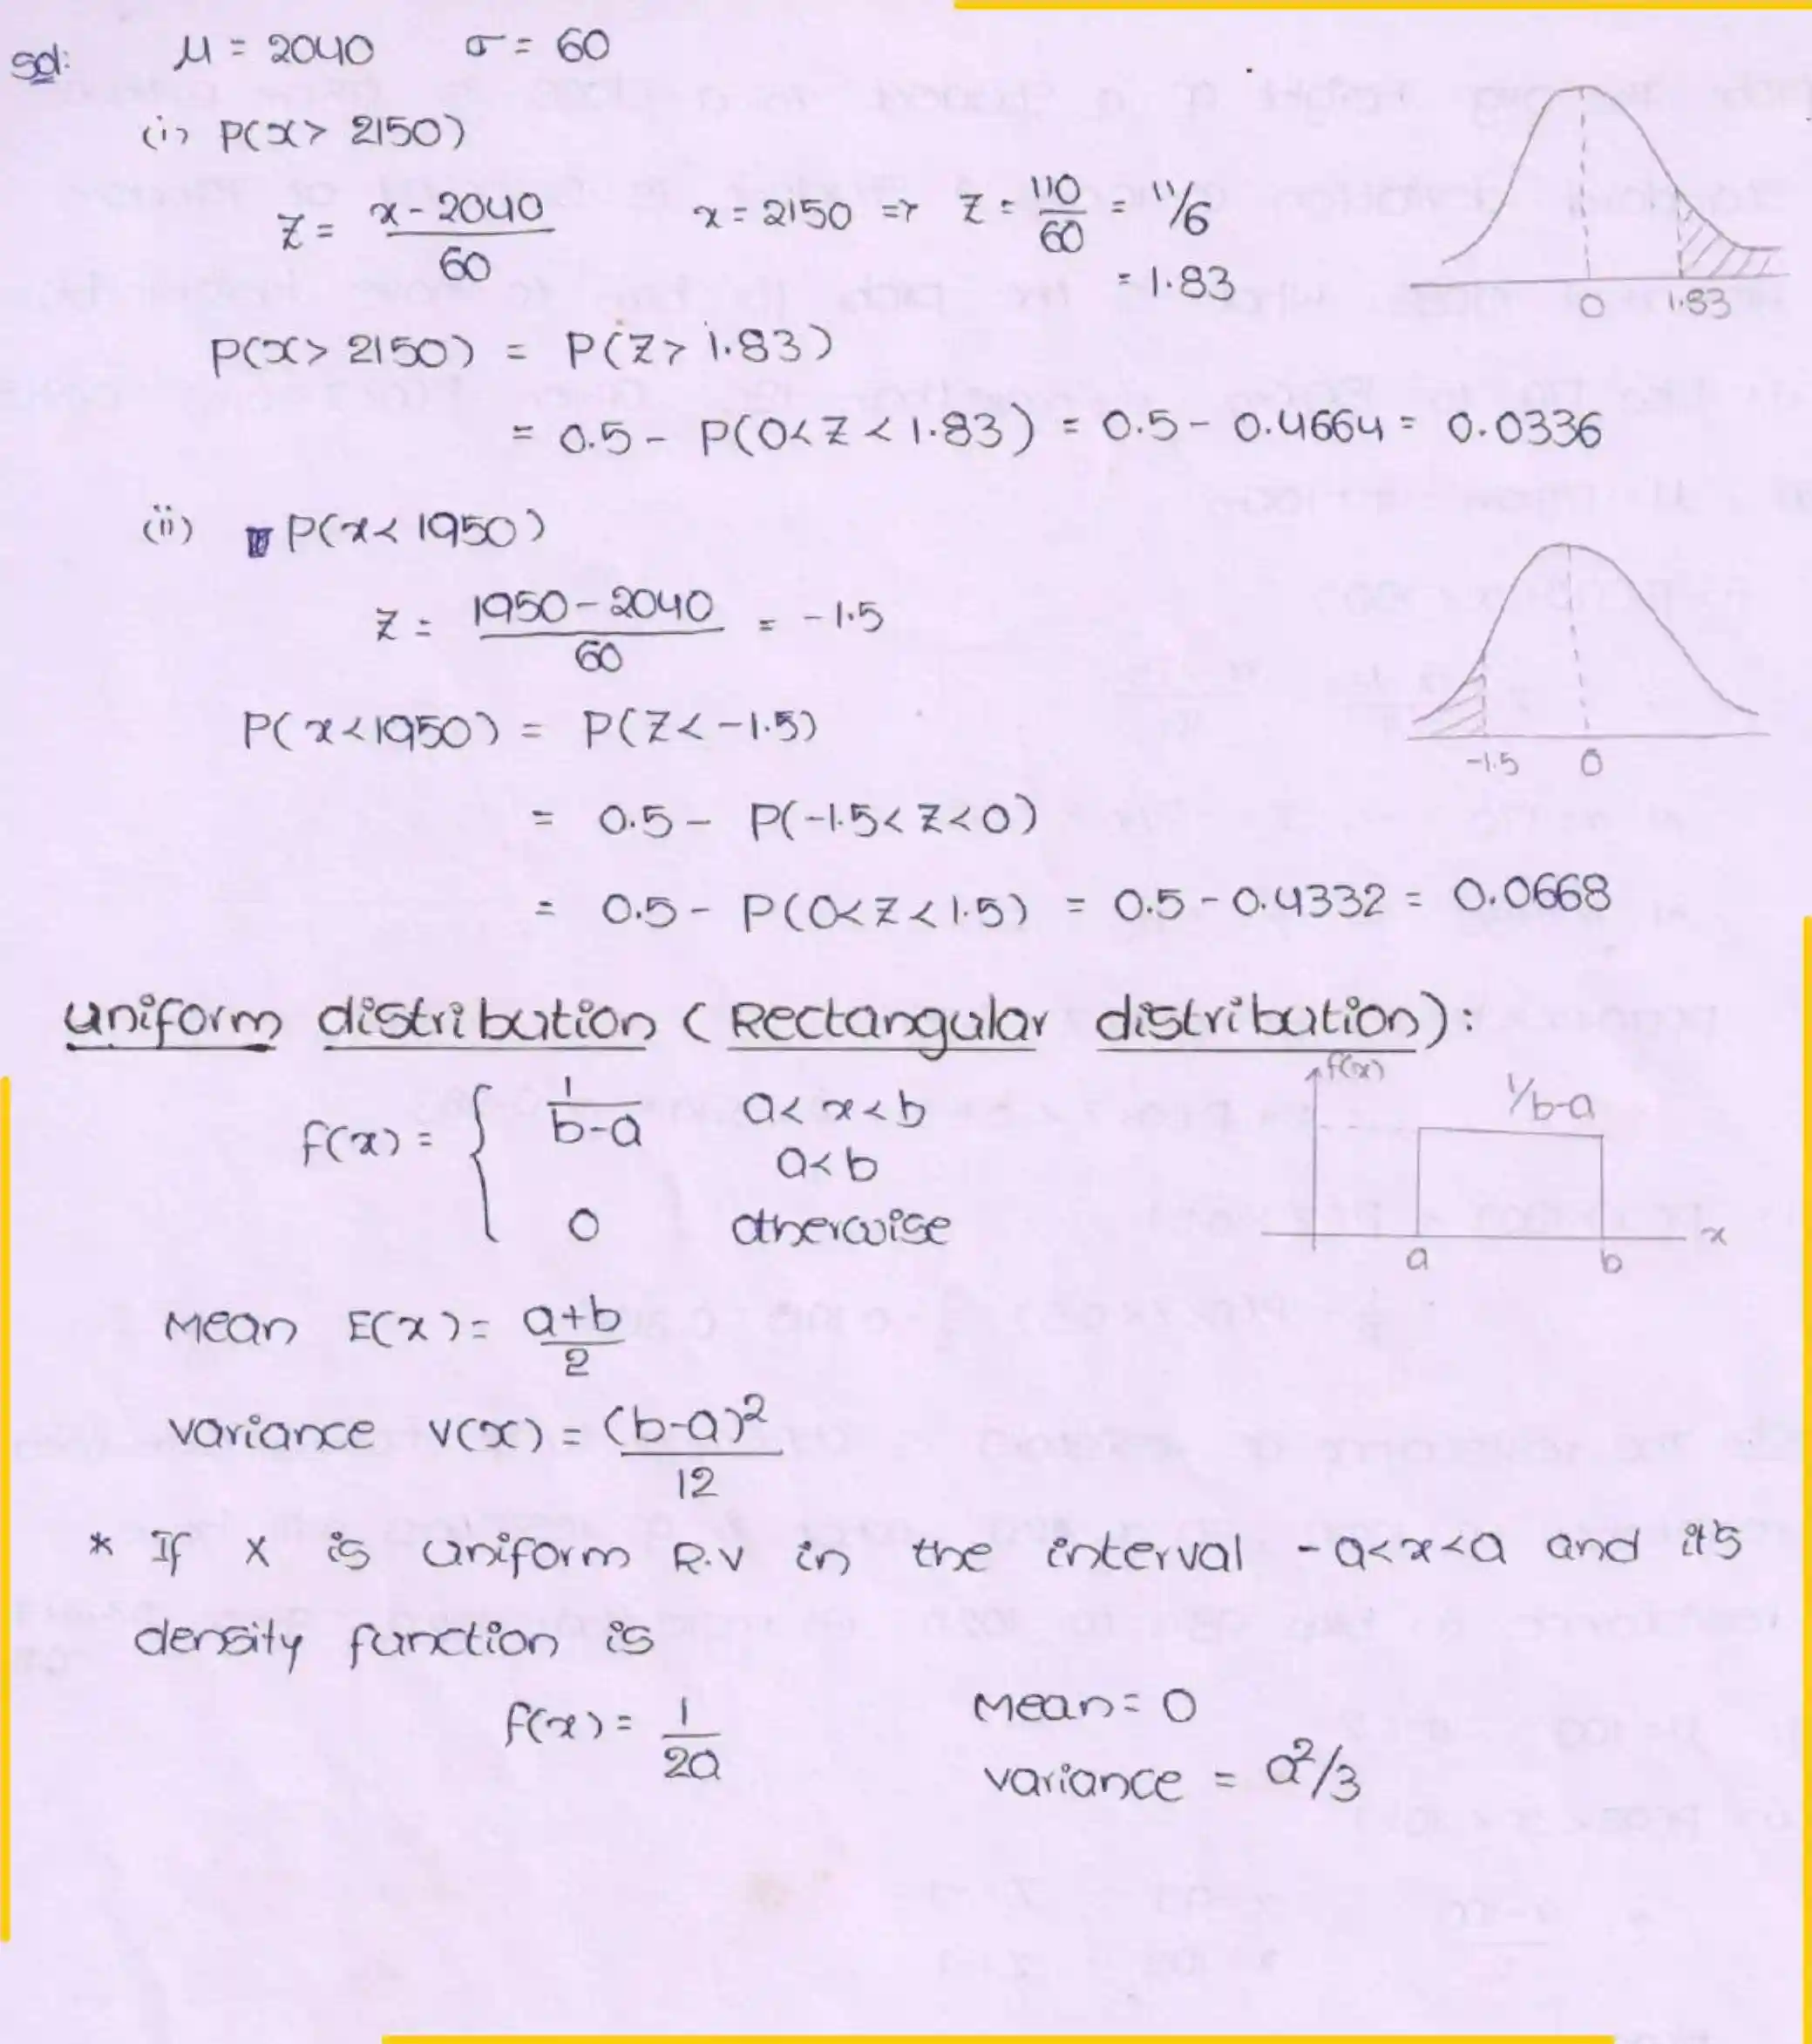 Sol: μ = 2040 σ = 60
(i) P(x > 2150)
z = (x - 2040)/60 x = 2150 => z = 110/60 = 11/6
= 1.83
0 1.83
P(x > 2150) = P(z > 1.83)
= 0.5 - P(0 < z < 1.83) = 0.5 - 0.4664 = 0.0336
(ii) P(x < 1950)
z = (1950 - 2040)/60 = -1.5
P(x < 1950) = P(z < -1.5)
-1.5 0
= 0.5 - P(-1.5 < z < 0)
= 0.5 - P(0 < z < 1.5) = 0.5 - 0.4332 = 0.0668
Uniform distribution (Rectangular distribution):
f(x) = { 1/(b-a) a < x < b
a < b
0 otherwise
f(x)
1/b-a
a b x
Mean E(x) = (a+b)/2
variance V(x) = (b-a)²/12
* If X is uniform R.V in the interval -a<x<a and it's
density function is
f(x) = 1/2a Mean = 0
variance = a²/3